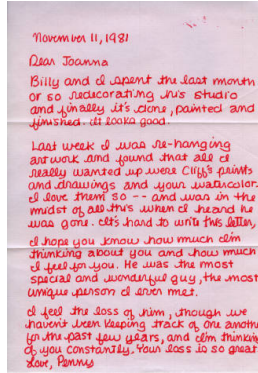 November 11, 1981
Dear Joanna
Billy and I spent the last month
or so redecorating his studio
and finally it's done, painted and
finished. It looks good.
Last week I was re-hanging
artwork and found that all I
really wanted up were Cliff's prints
and drawings and your watercolor.
I love them so -- and was in the
midst of all this when I heard he
was gone. It's hard to write this letter,
I hope you know how much I'm
thinking about you and how much
I feel for you. He was the most
special and wonderful guy, the most
unique person I ever met.
I feel the loss of him, though we
haven't been keeping track of one anothe
for the past few years, and I'm thinking
of you constantly. Your loss is so great
Love, Penny